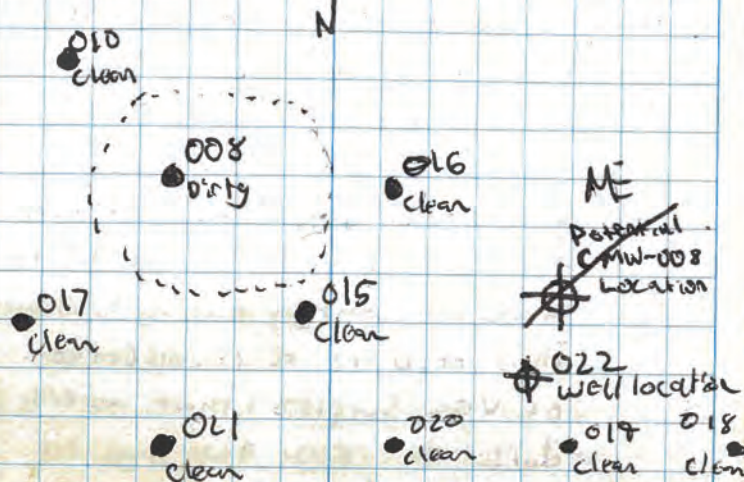 N
010
clean
008
Dirty
016
clean
ME
Potential
CMW-008
Location
017
clean
015
clean
022
well location
021
clean
020
clean
019
clean
018
clean